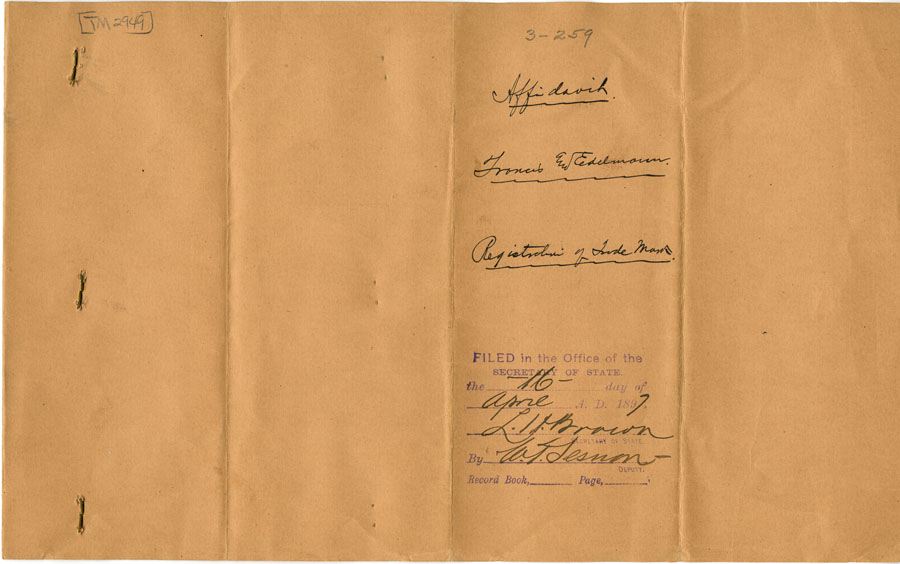 TM 2949
3-259
Affidavit
Francis EW Edelmann.
Registration of Trade Mark.
FILED in the Office of the
SECRETARY OF STATE.
the 16 day of
April A. D. 1897,
L. H. Brown
SECRETARY OF STATE.
By W. T. Sesnon
DEPUTY.
Record Book, Page,